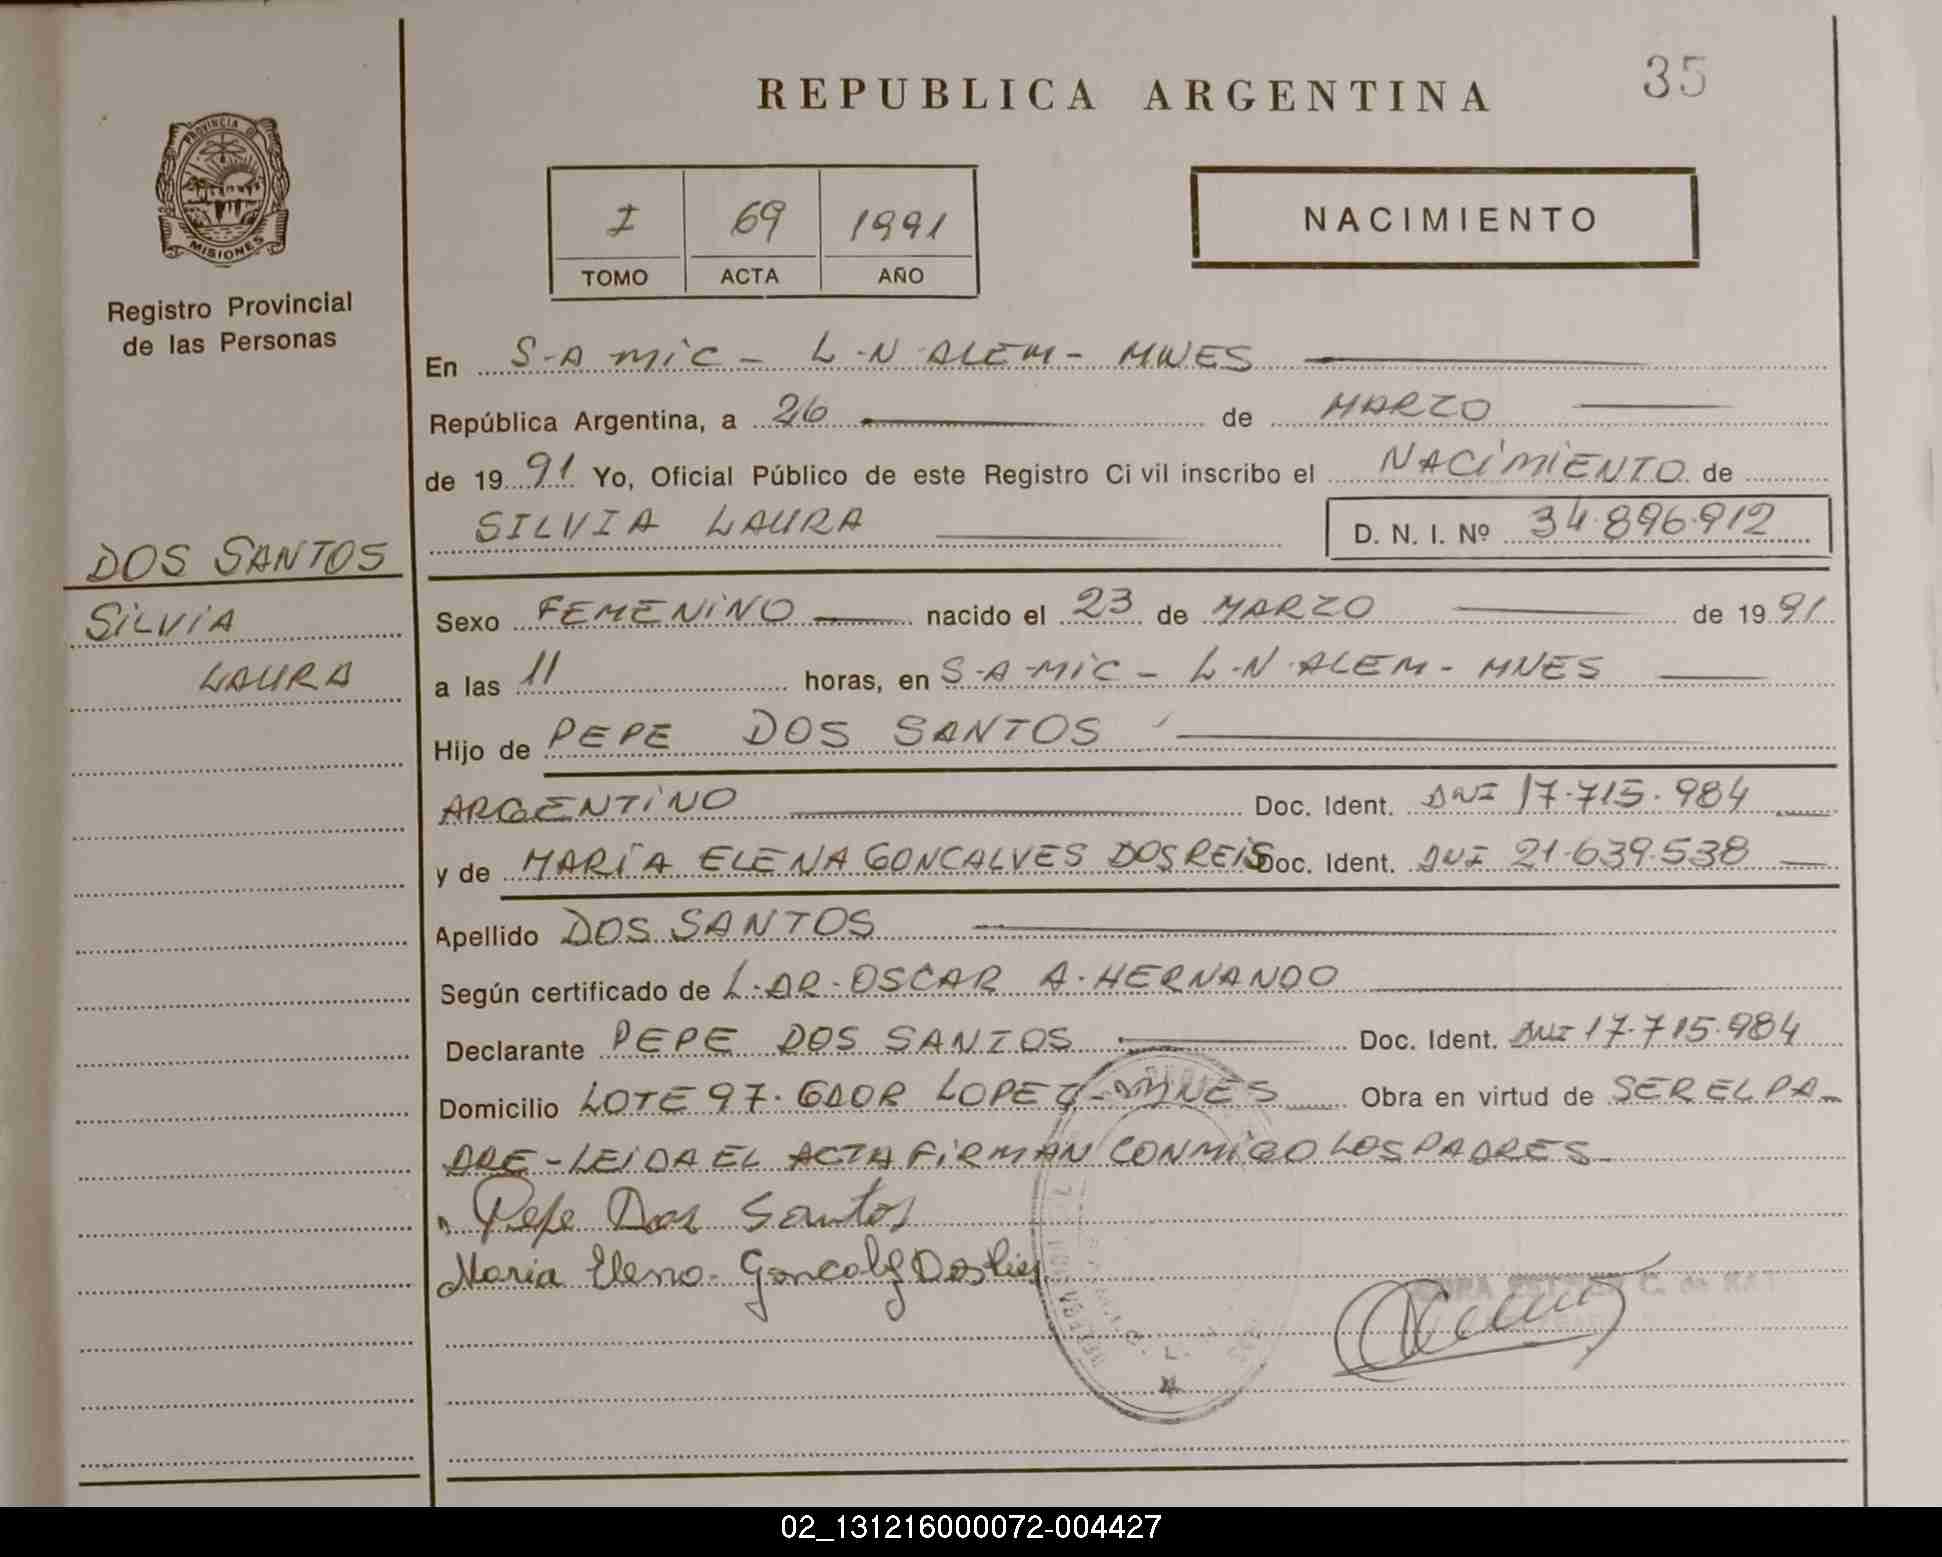 35
REPUBLICA ARGENTINA
PROVINCIA DE
MISIONES
Registro Provincial
de las Personas
I 69 1991
TOMO ACTA AÑO
NACIMIENTO
En S-A-MIC - L-N-ALEM - MNES
República Argentina, a 26 de MARZO
de 1991 Yo, Oficial Público de este Registro Civil inscribo el NACIMIENTO de
SILVIA LAURA D. N. I. Nº 34.896.912
DOS SANTOS
SILVIA
LAURA
Sexo FEMENINO nacido el 23 de MARZO de 1991
a las 11 horas, en S-A-MIC - L-N-ALEM - MNES
Hijo de PEPE DOS SANTOS
ARGENTINO Doc. Ident. DNI 17.715.984
y de MARIA ELENA GONCALVES DOS REIS Doc. Ident. DNI 21.639.538
Apellido DOS SANTOS
Según certificado de L-DR-OSCAR A. HERNANDO
Declarante PEPE DOS SANTOS Doc. Ident. DNI 17.715.984
Domicilio LOTE 97. GDOR LOPEZ - MNES Obra en virtud de SER EL PA-
DRE - LEIDA EL ACTA FIRMAN CONMIGO LOS PADRES
Pepe Dos Santos
Maria Elena Goncalves Dos Reis
02_131216000072-004427